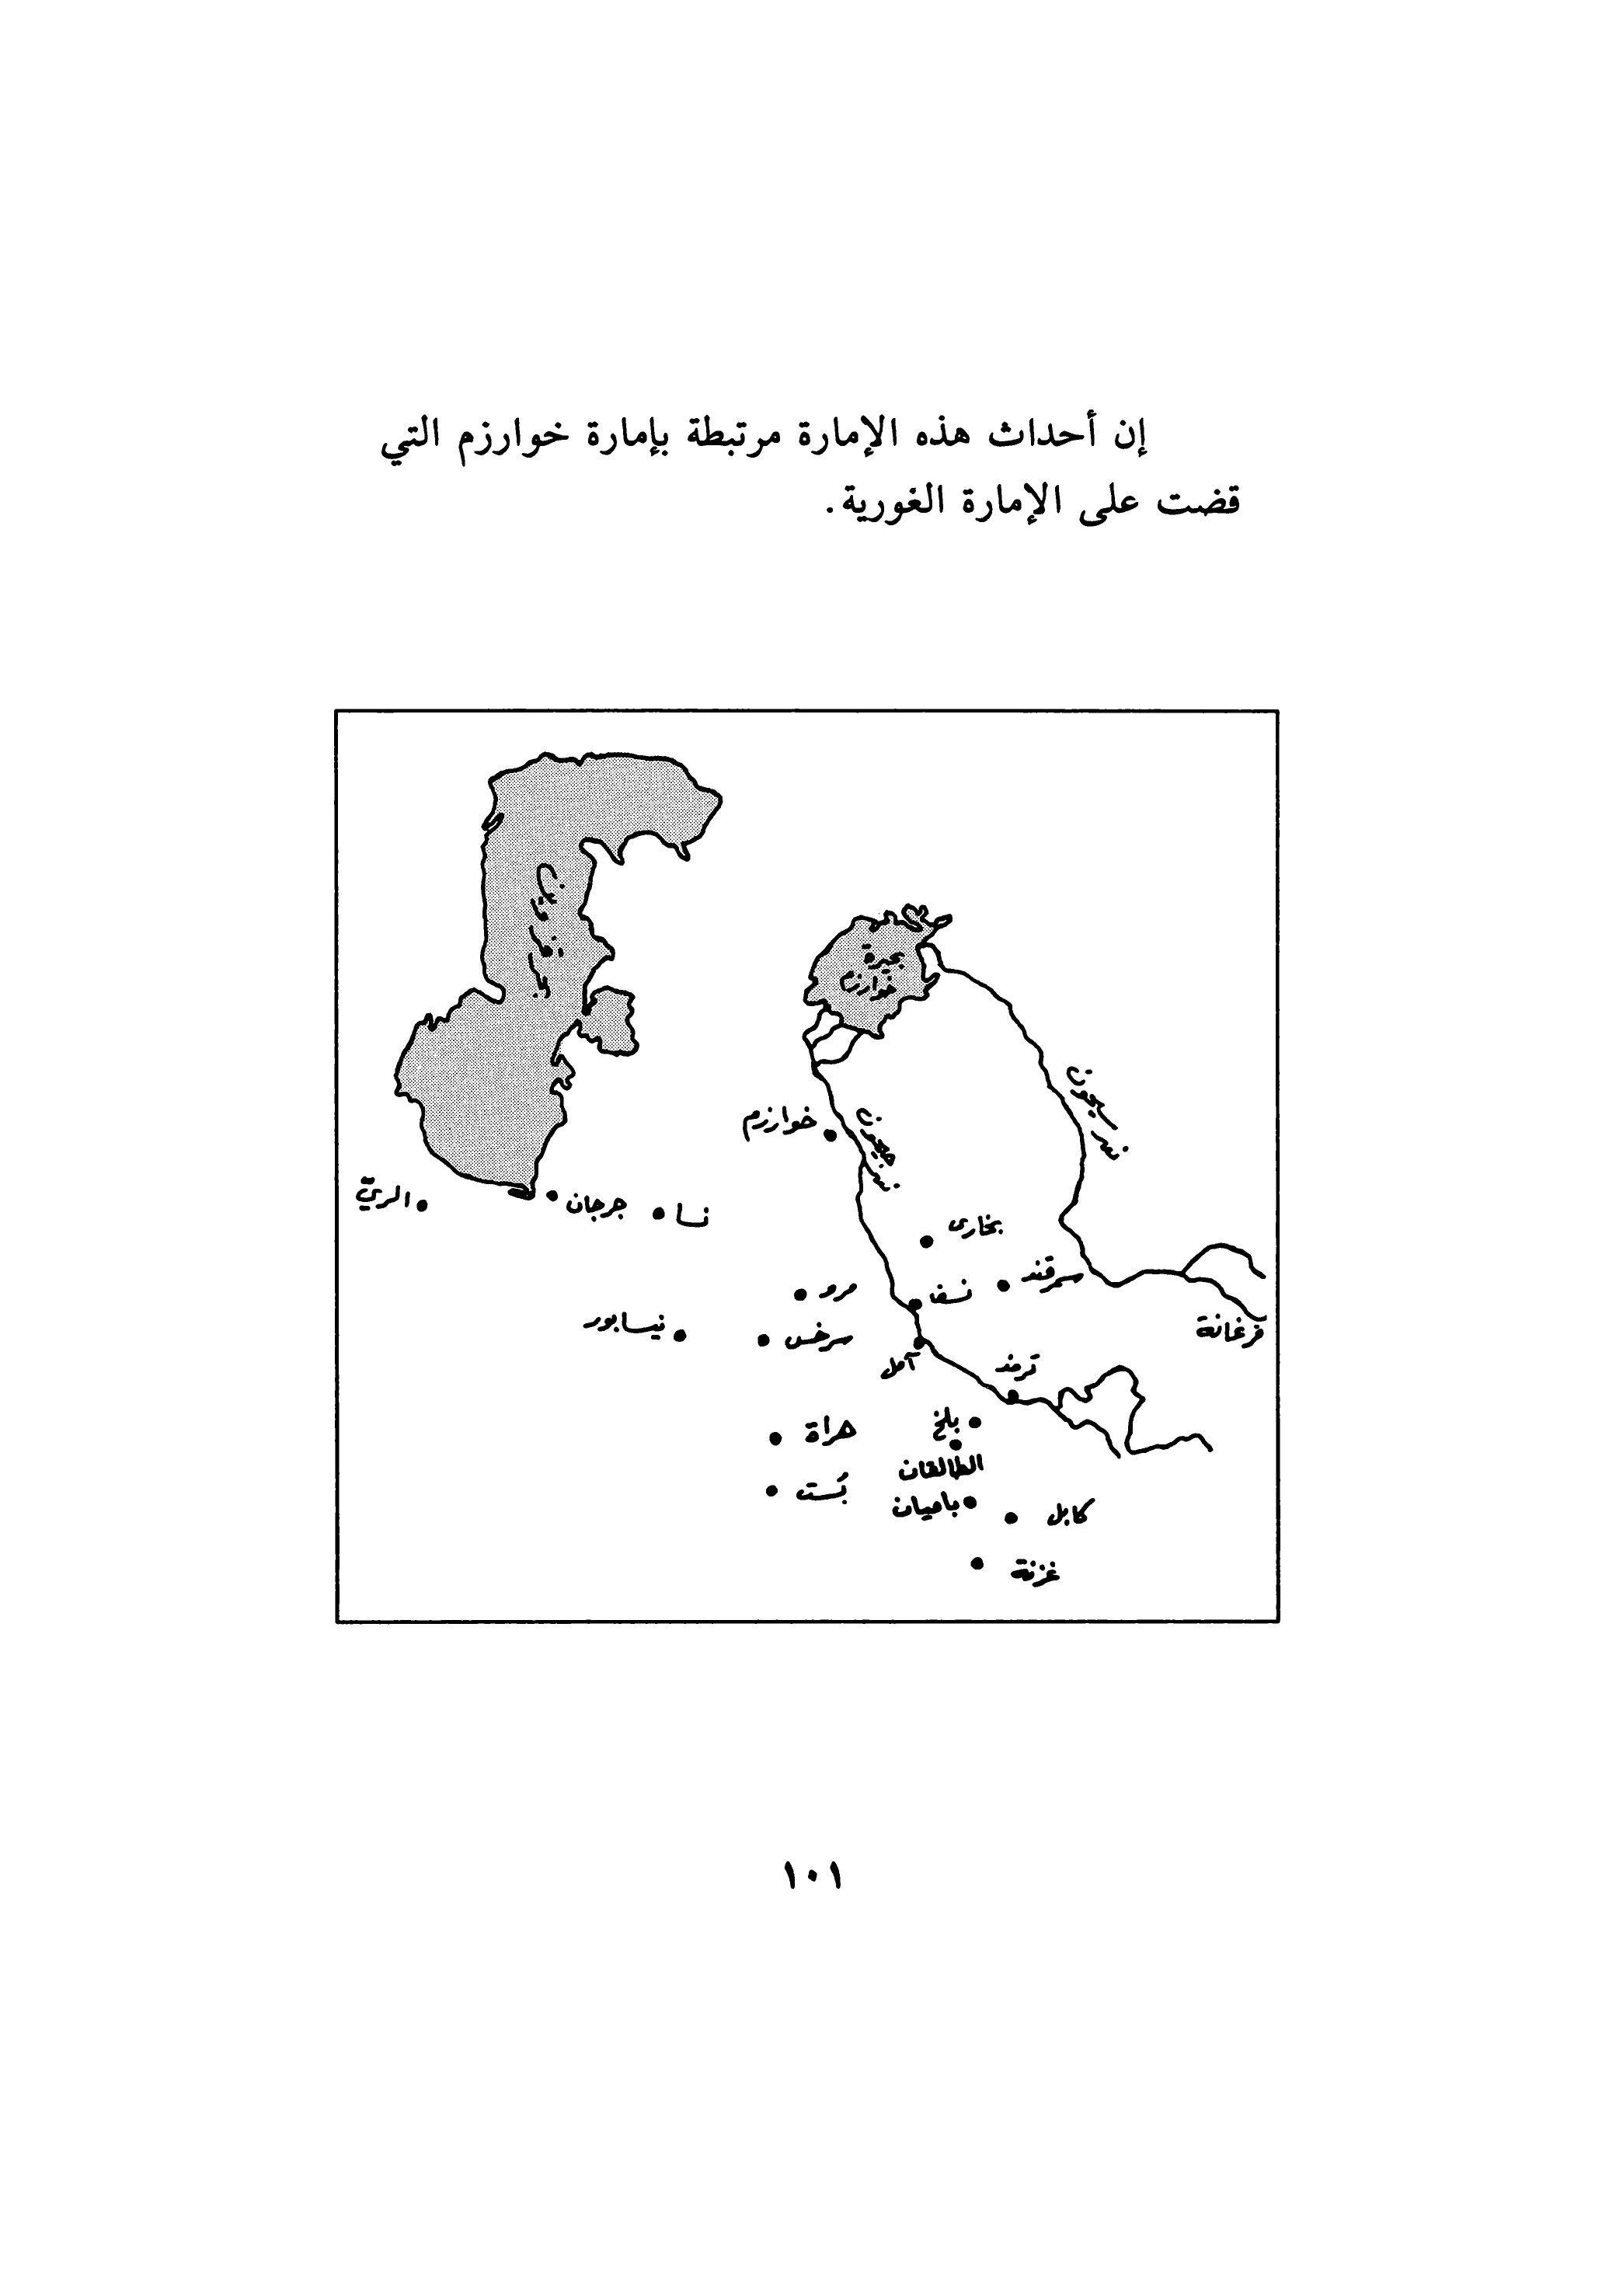 إن أحداث هذه الإمارة مرتبطة بإمارة خوارزم التي
قضت على الإمارة الغورية.
بحر قزوين
بحيرة
خوارزم
نهر سيحون
نهر جيحون
خوارزم
الريّ
جرجان
نسا
بخارى
سمرقند
نسف
مرو
نيسابور
سرخس
آمل
ترمذ
فرغانة
بلخ
هراة
الطالقان
بُست
باميان
كابل
غزنة
١٠١